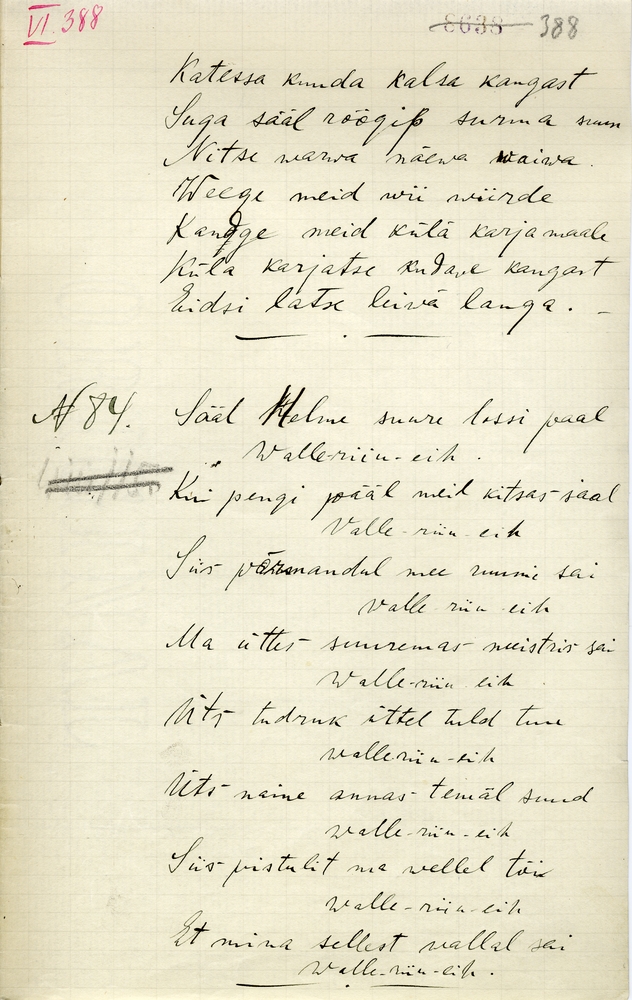 VI. 388
8638 388
Katessa kunda kalsa kangast
Suga sääl röögiß surma suun
Nitse warwa näewa waiwa.
Weege meid wii wiirde
Kandge meid külä karjamaale
Küla karjatse kudave kangast
Eidsi latse leivä langa. –
N 84. Sääl Helme suure lossi pääl
Walle-riiu-eih.
Kui pengi pääl meid kitsas sääl
Valle-riiu-eih
Siis põrmandul mee ruumi sai
Valle-riiu-eih
Ma üttes suuremas meistris sai
Walle-riiu-eih
Üts tudruk üttel tuld tuu
walle-riiu-eih
Üts naine annas temäl suud
walle-riiu-eih
Siis pistulit ma wellel tõi
walle-riiu-eih
Et mina sellest vallal sai
walle-riiu-eih.